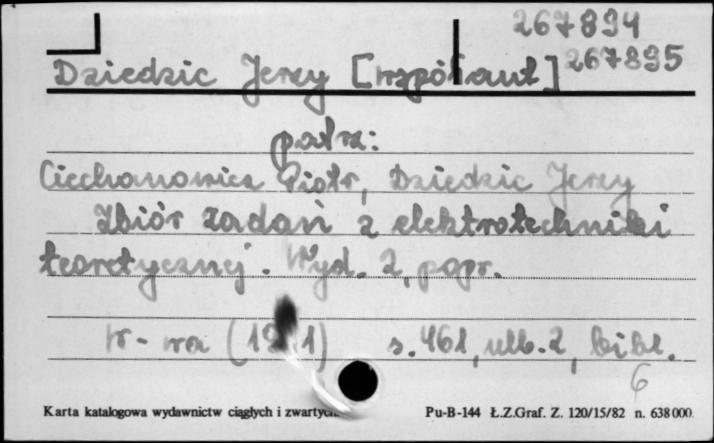 267894
Dziedzic Jerzy [współaut] 267895
patrz:
Ciechanowicz Piotr, Dziedzic Jerzy
Zbiór zadań z elektrotechniki
teoretycznej. Wyd. 2, popr.
W-wa s. 461, ulb. 2, bibl.
6
Karta katalogowa wydawnictw ciągłych i Pu-B-144 Ł.Z.Graf. Z. 120/15/82 n. 638000